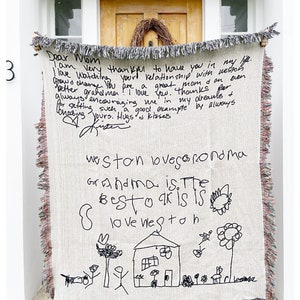 3
Dear Mom
I am very thankful to have you in my life
I love watching your relationship with Weston
grow & change. You are a great mom & an even
better grandma. I love you. Thanks for
always encouraging me in my dreams &
for setting such a good example by always
Hugs & kisses
weston loves grandma
Grandma is the
Best
love weston